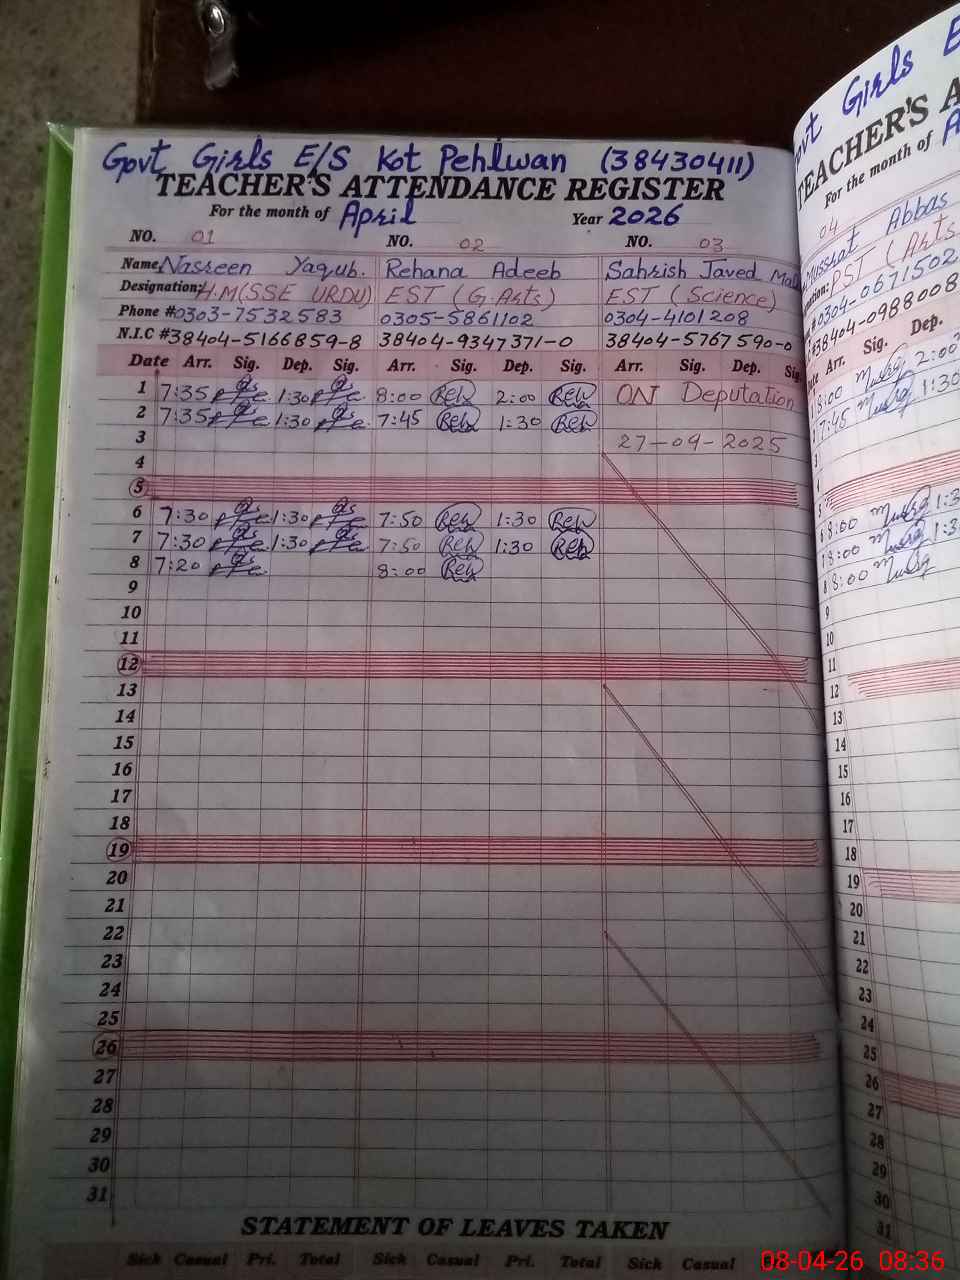 Govt Girls E/S Kot Pehlwan (38430411)
TEACHER'S ATTENDANCE REGISTER
For the month of April Year 2026
NO. 01 NO. 02 NO. 03
Name Nasreen Yaqub. Rehana Adeeb Sahrish Javed
Designation: H.M(SSE URDU) EST (G.Arts) EST (Science)
Phone # 0303-7532583 0305-5861102 0304-4101208
N.I.C # 38404-5166859-8 38404-9347371-0 38404-5767590-0
Date Arr. Sig. Dep. Sig. Arr. Sig. Dep. Sig. Arr. Sig. Dep. Sig.
1 7:35 1:30 8:00 Reh 2:00 Reh ON Deputation
2 7:35 1:30 7:45 Reh 1:30 Reh
3 27-09-2025
4
5
6 7:30 1:30 7:50 Reh 1:30 Reh
7 7:30 1:30 7:50 Reh 1:30 Reh
8 7:20 8:00 Reh
9
10
11
12
13
14
15
16
17
18
19
20
21
22
23
24
25
26
27
28
29
30
31
STATEMENT OF LEAVES TAKEN
Sick Casual Pri. Total Sick Casual Pri. Total Sick Casual
Girls E
TEACHER'S A
For the month of A
04
Musshat Abbas
PST (Arts
0304-0671502
38404-0988008
Arr. Sig. Dep.
1 8:00 2:00
2 7:45 1:30
3
4
5
6 8:00 1:3
7 8:00 1:3
8 8:00
9
10
11
12
13
14
15
16
17
18
19
20
21
22
23
24
25
26
27
28
29
30
31
08-04-26 08:36